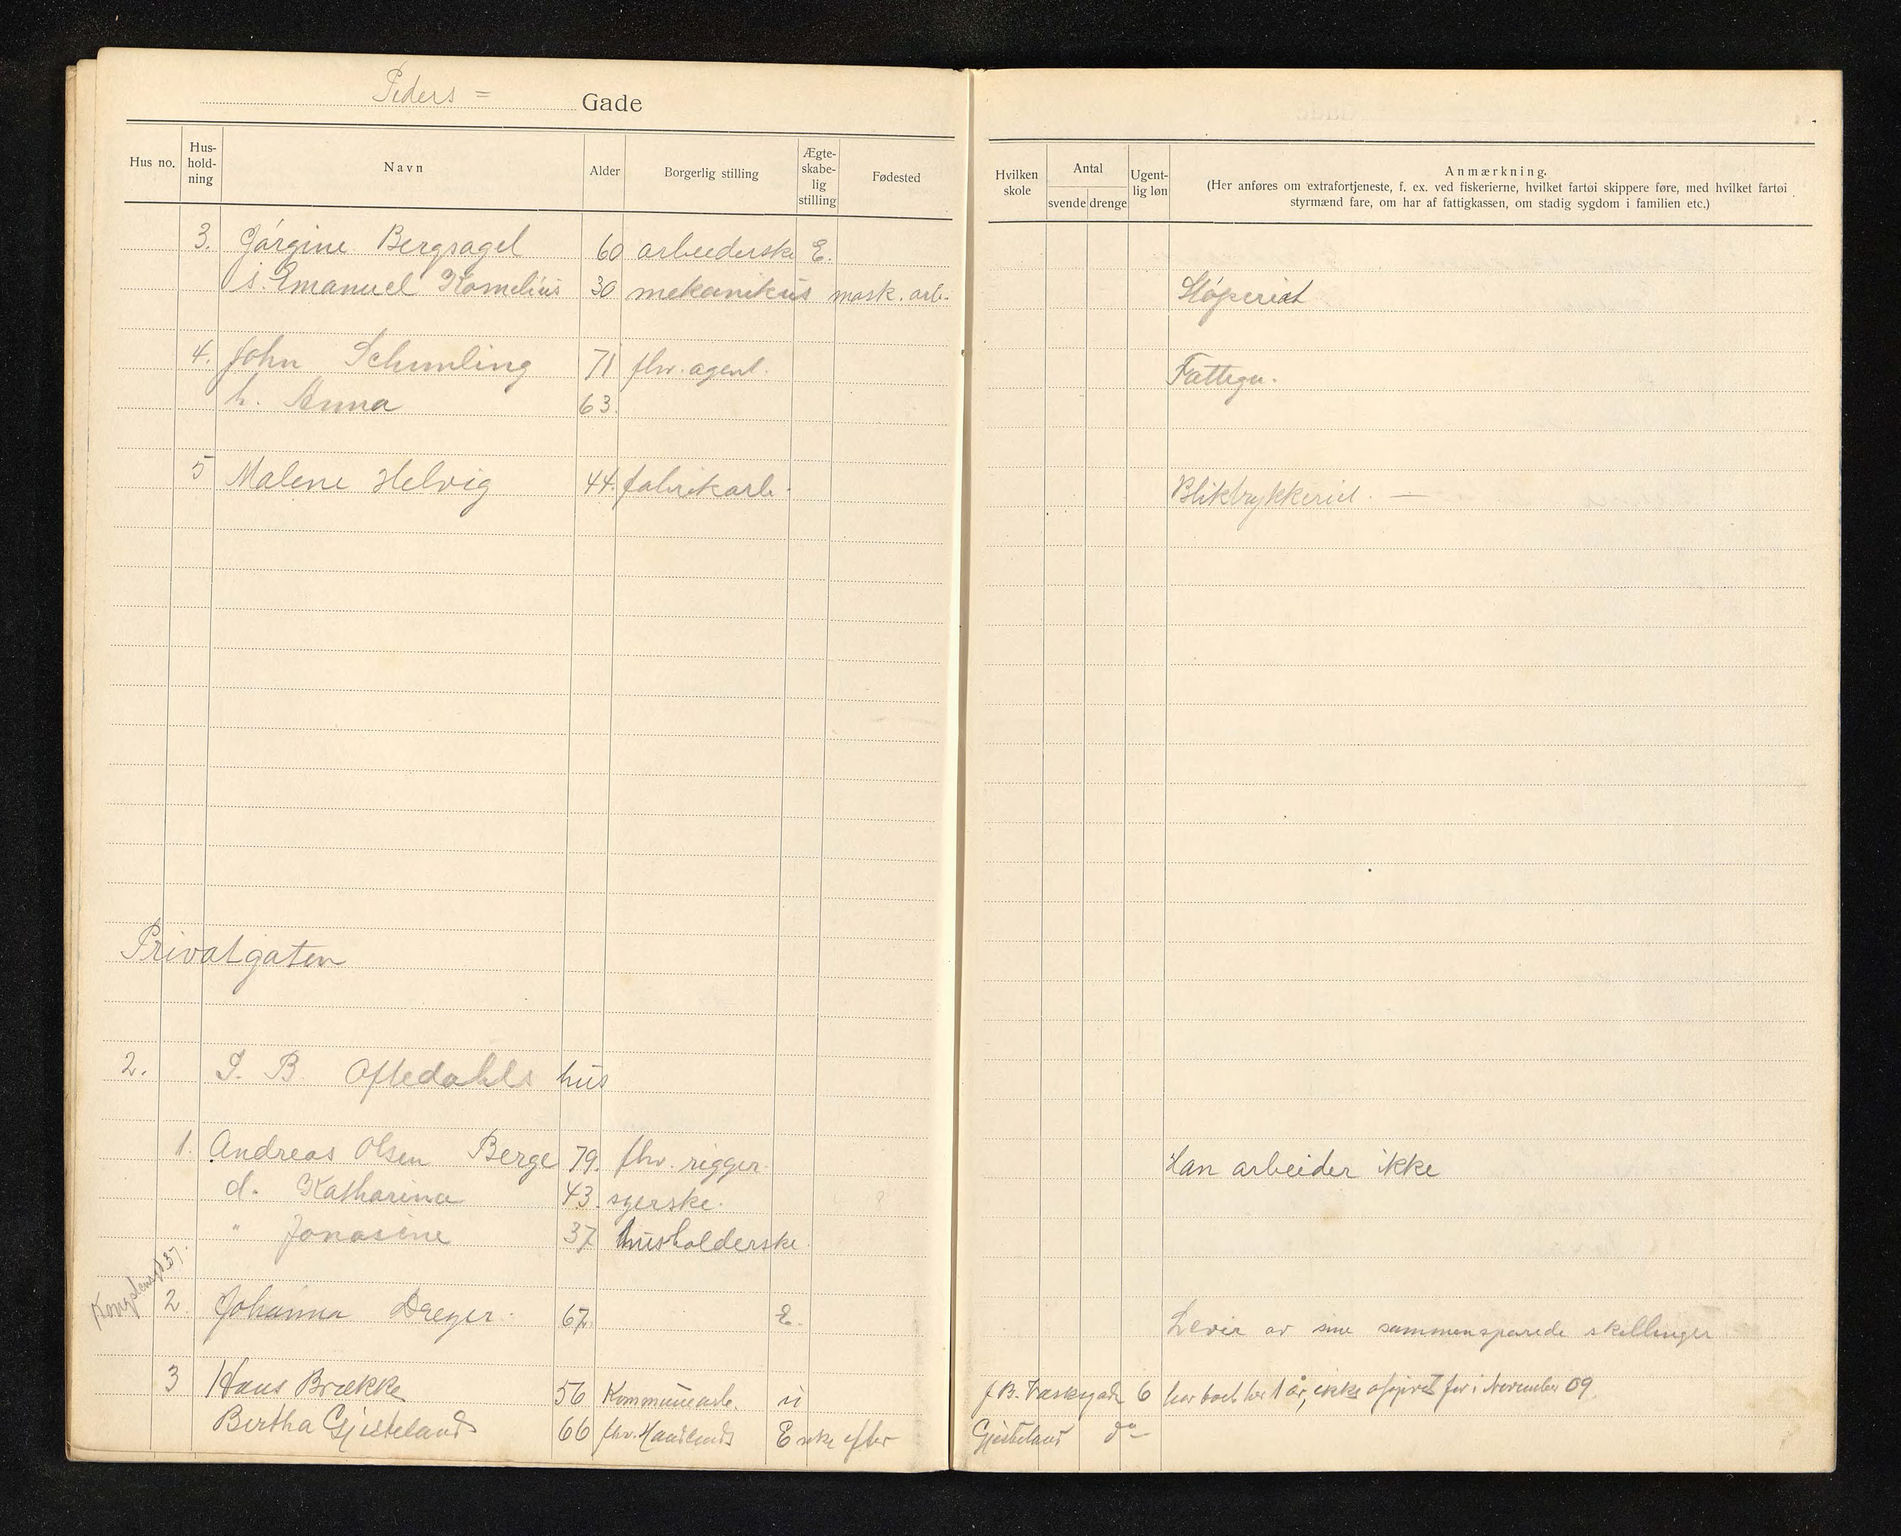 Peders = Gade
Hus no. Hus-hold-ning Navn Alder Borgerlig stilling Ægte-skabe-lig stilling Fødested Hvilken skole Antal svende drenge Ugent-lig løn Anmærkning.
(Her anføres om extrafortjeneste, f. ex. ved fiskerierne, hvilket fartøi skippere føre, med hvilket fartøi
styrmænd fare, om har af fattigkassen, om stadig sygdom i familien etc.)
3. Jørgine Bergsagel 60 arbeiderske E.
s. Emanuel Kornelius 30 mekanikus mask. arb. Støperiet
4. John Schmling 71 fhv. agent. Fattegn.
h. Anna 63.
5 Malene Helvig 44. fabrikarb. Bliktrykkeriet. —
Privatgaten
2. S. B. Oftedahls hus
1. Andreas Olsen Berge 79. fhv. rigger. Han arbeider ikke
d. Katharina 43. syerske. ?
" Jonasine 37 husholderske.
Kongstensgt 37.
2. Johanna Dreyer. 67. E. Lever av sine sammensparede skillinger
3 Hans Brække 56 Kommunearb. u J B. Vaskegade 6 har boet her 1 år, ikke opgivet før i November 09
Bertha Gjesteland 66 fhv. E enke efter Gjesteland do